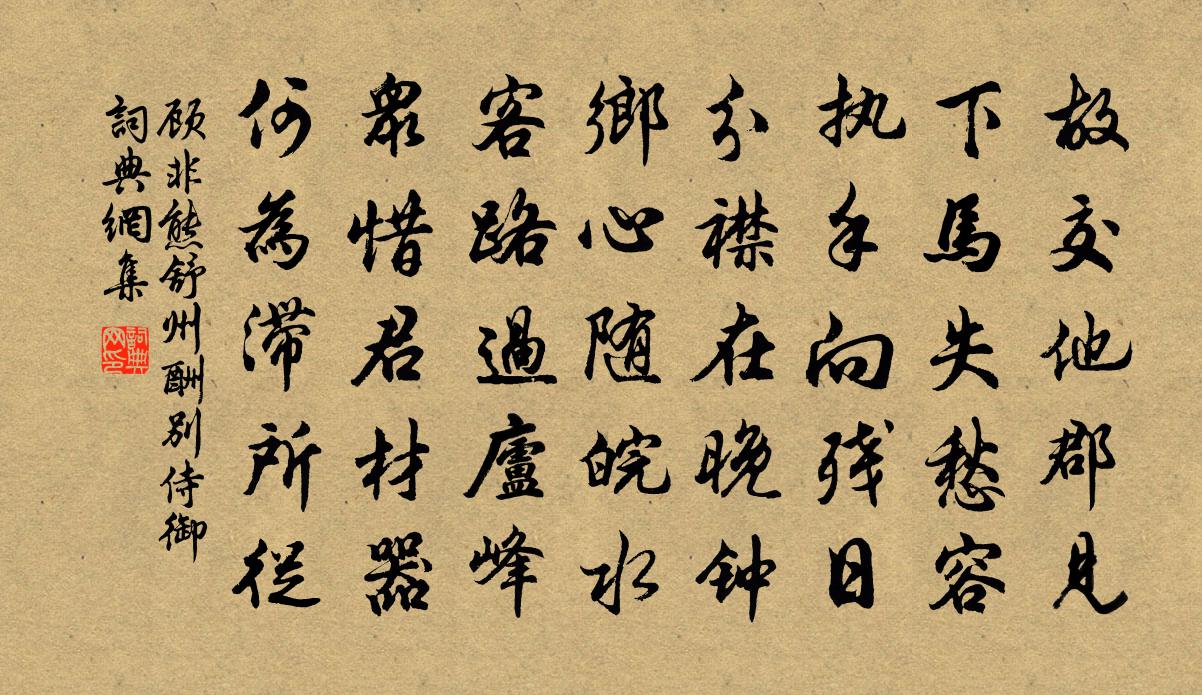 故交他郡見
下馬失愁容
执手向残日
分襟在晚钟
鄉心随皖水
客路過廬峰
眾惜君材器
何為滞所從
顾非熊舒州酬别侍御
詞典網集
詞典网印